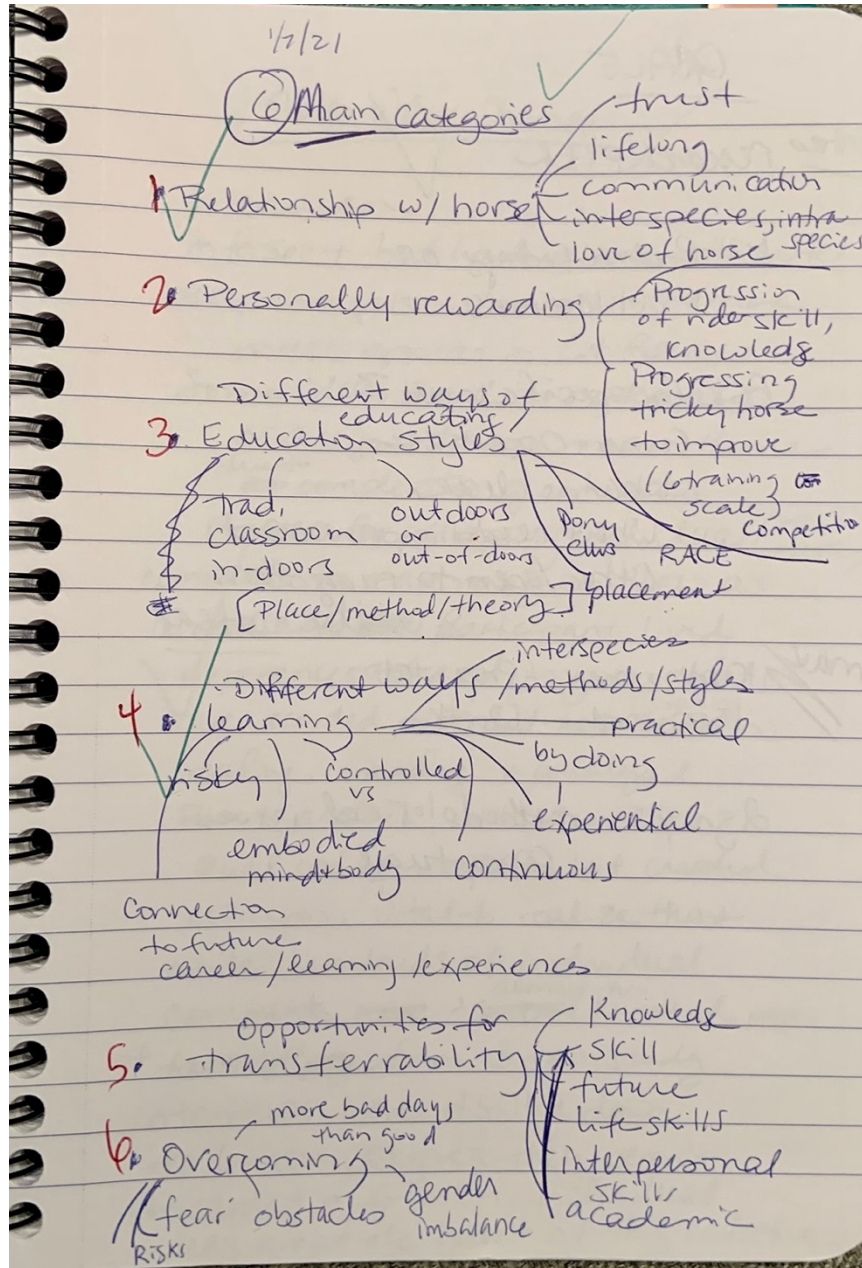 1/7/21
6 Main categories
trust
lifelong
communication
1 Relationship w/ horse
interspecies, intra
species
love of horse
2. Personally rewarding
Progression
of rider skill,
knowledge
Progressing
tricky horse
to improve
(6 training
scale)
competitio
Different ways of
educating/
3. Education Styles
trad.
classroom
in-doors
outdoors
or
out-of-doors
pony
club
RACE
placement
[Place/method/theory]
interspecies
Different ways/methods/styles
4. learning
practical
by doing
experiential
risky
controlled
vs
embodied
mind+body
continuous
Connection
to future
career/learning/experiences
Opportunities for
5. transferrability
Knowledge
skill
future
life skills
interpersonal
skills
academic
more bad days
than good
6. Overcoming
fear
obstacles
gender
imbalance
Risks